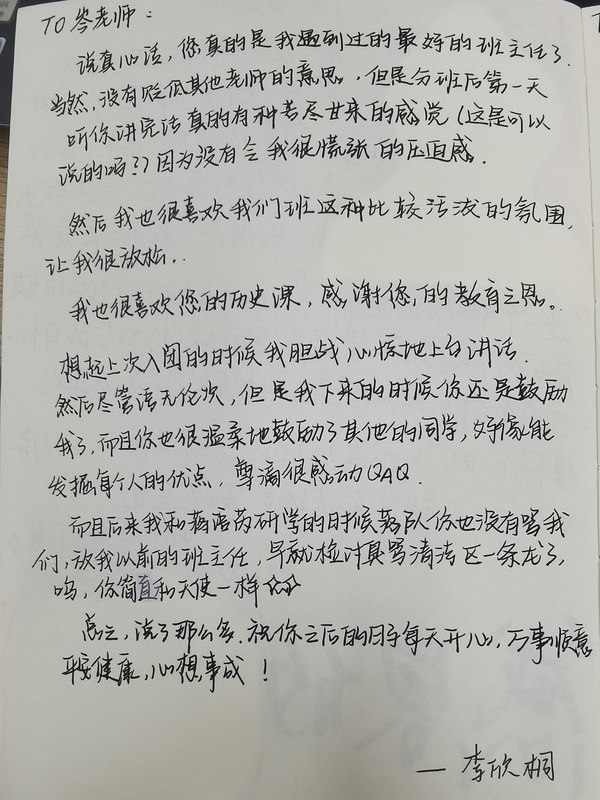 TO 岑老师：
说真心话，您真的是我遇到过的最好的班主任了.
当然，没有贬低其他老师的意思，但是分班后第一天
听你讲完话真的有种苦尽甘来的感觉（这是可以
说的吗？）因为没有令我很慌张的压迫感.
然后我也很喜欢我们班这种比较活泼的氛围，
让我很放松..
我也很喜欢您的历史课，感谢您的教育之恩。.
想起上次入团的时候我胆战心惊地上台讲话.
然后尽管语无伦次，但是我下来的时候你还是鼓励
我了，而且你也很温柔地鼓励了其他的同学，好像能
发掘每个人的优点，尊嘟很感动QAQ.
而且后来我和 研学的时候 队你也没有骂我
们，放我以前的班主任，早就检讨具骂清法区一条龙了，
呜，你简直和天使一样☆☆
总之，说了那么多，祝你之后的日子每天开心，万事顺意
平安健康，心想事成！
— 李欣桐